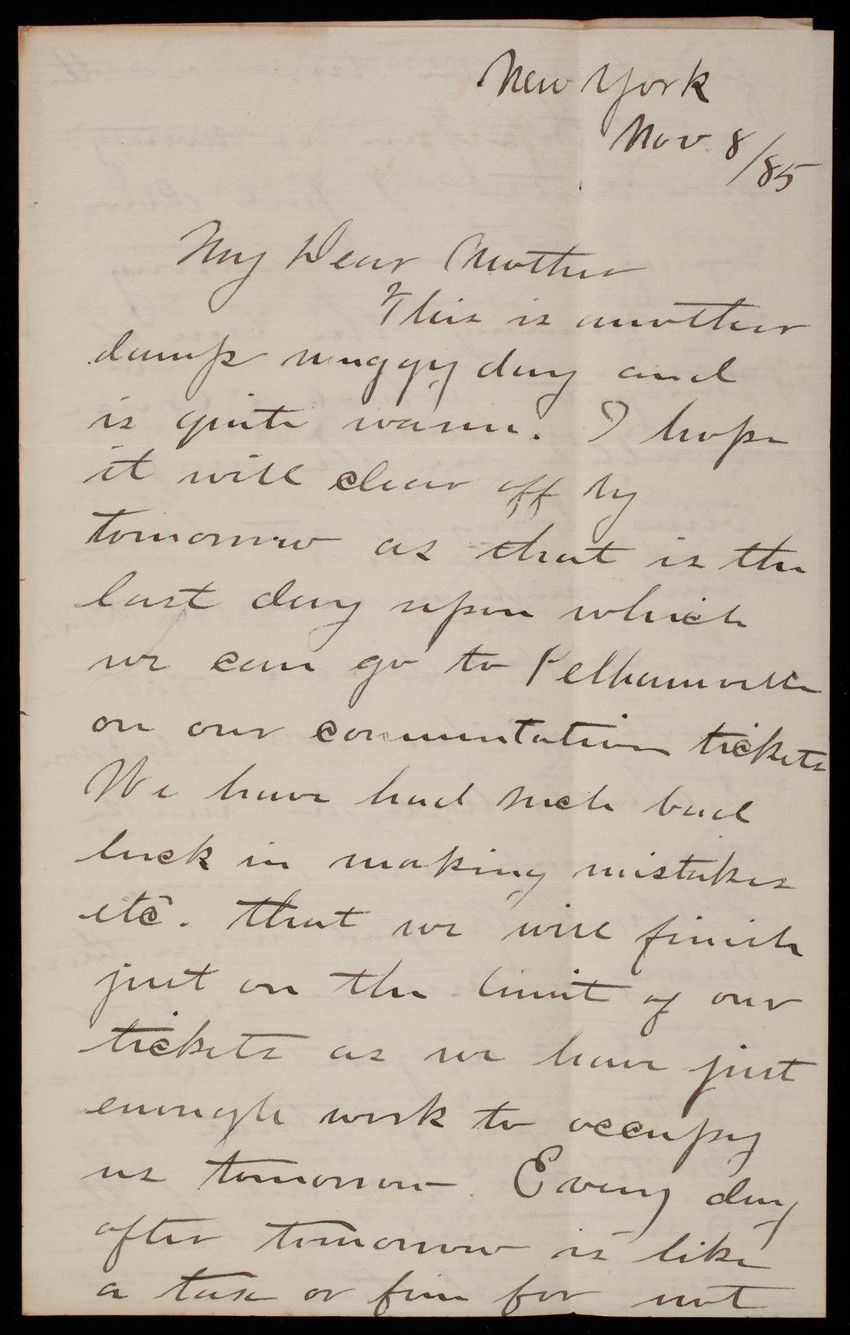 New York
Nov. 8/85
My Dear Mother
This is another
damp muggy day and
is quite warm. I hope
it will clear off by
tomorrow as that is the
last day upon which
we can go to Pelhamville
on our commutation tickets
We have had such bad
luck in making mistakes
etc. that we will finish
just on the limit of our
tickets as we have just
enough work to occupy
us tomorrow. Every day
after tomorrow is like
a tax or fine for not